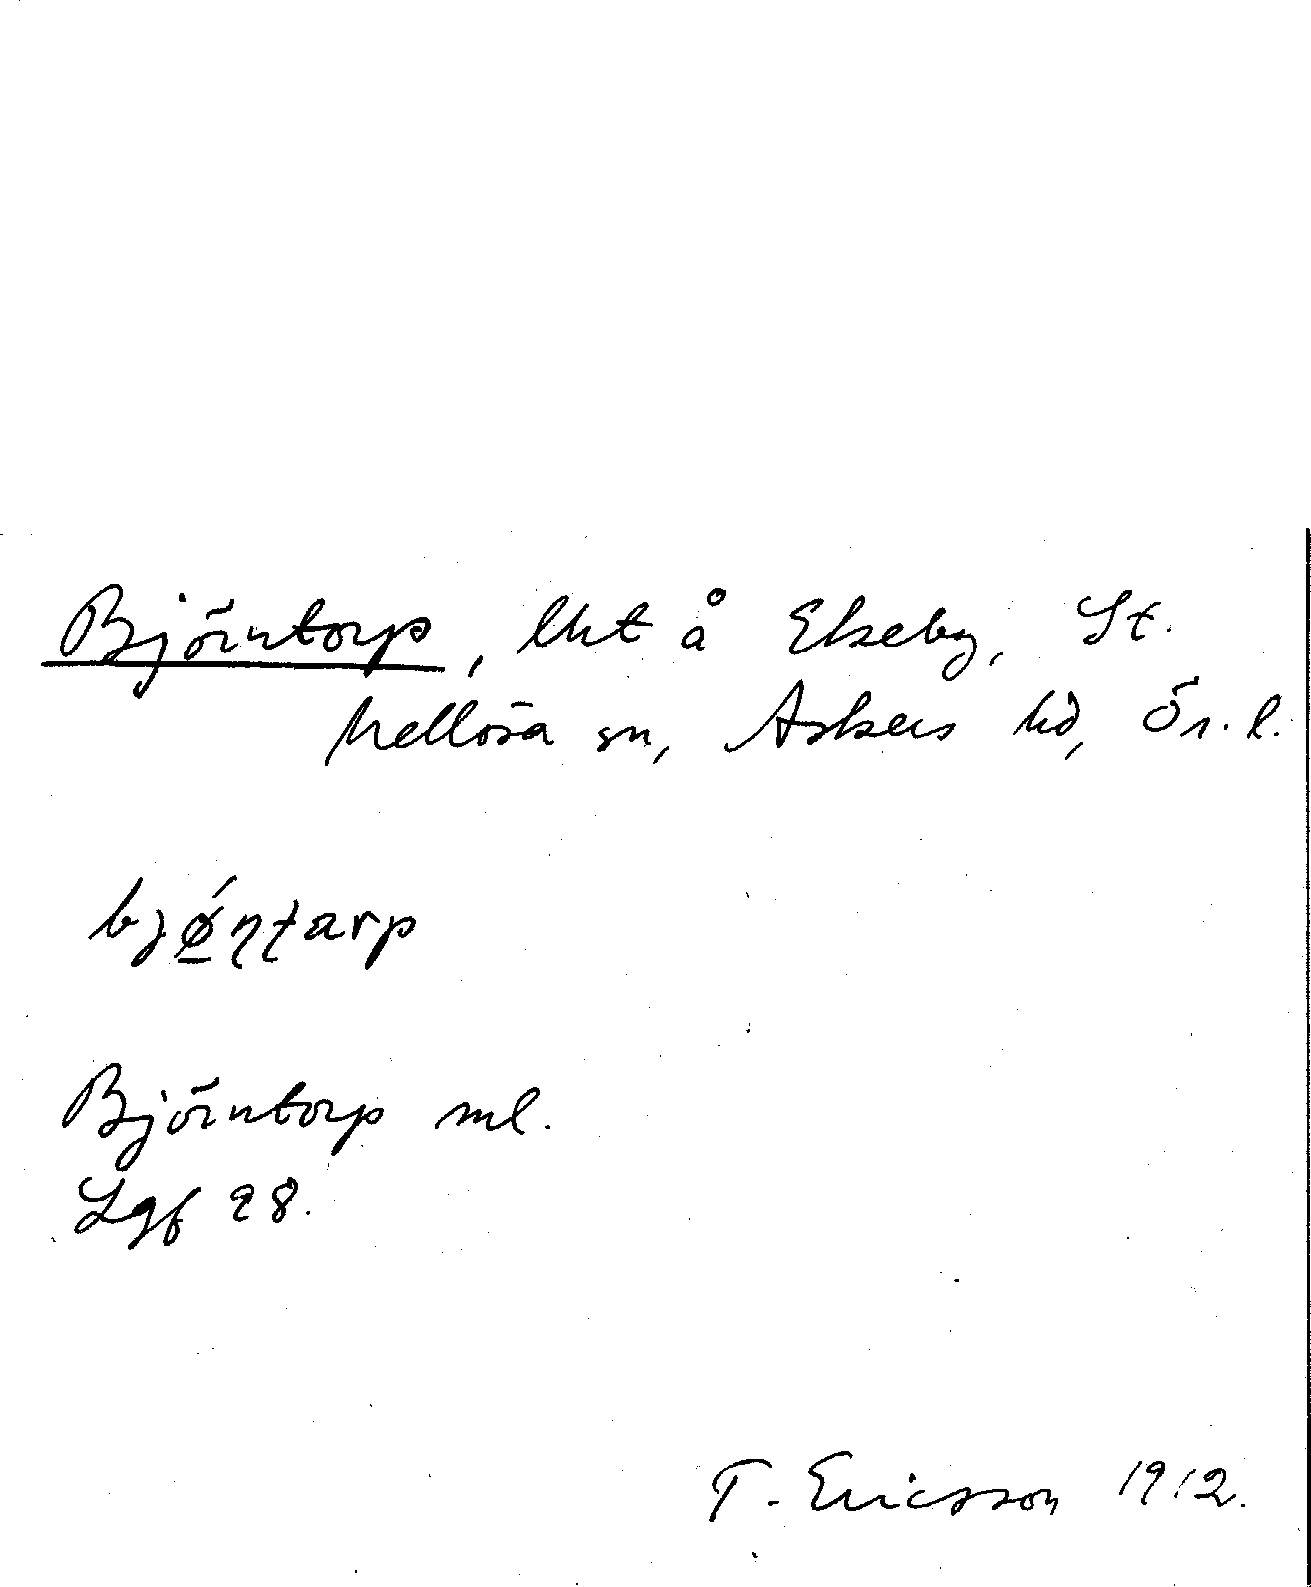 Björntorp, lht å Ekeby, St.
Mellösa sn, Askers hd, Ör. l.
bjǿ̲ɳʈarp
Björntorp ml.
Lgf 28.
T. Ericsson 1912.